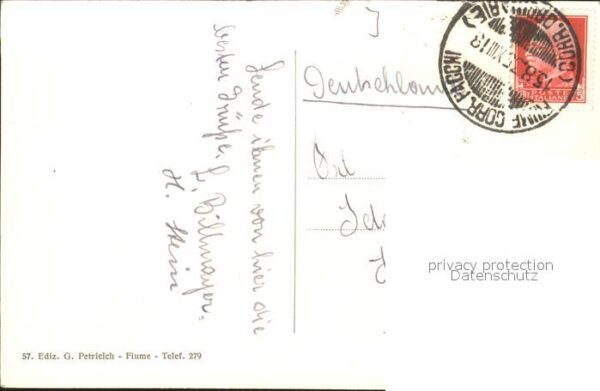 Sende ihnen von hier die
besten Grüße.
L. Billmayer.
H. Stein
Deutschland
Ort
FIUME CORR. PACCHI
(CORR. ORDINARIE)
15.8.
POSTE
ITALIANE
privacy protection
Datenschutz
57. Ediz. G. Petricich - Fiume - Telef. 279